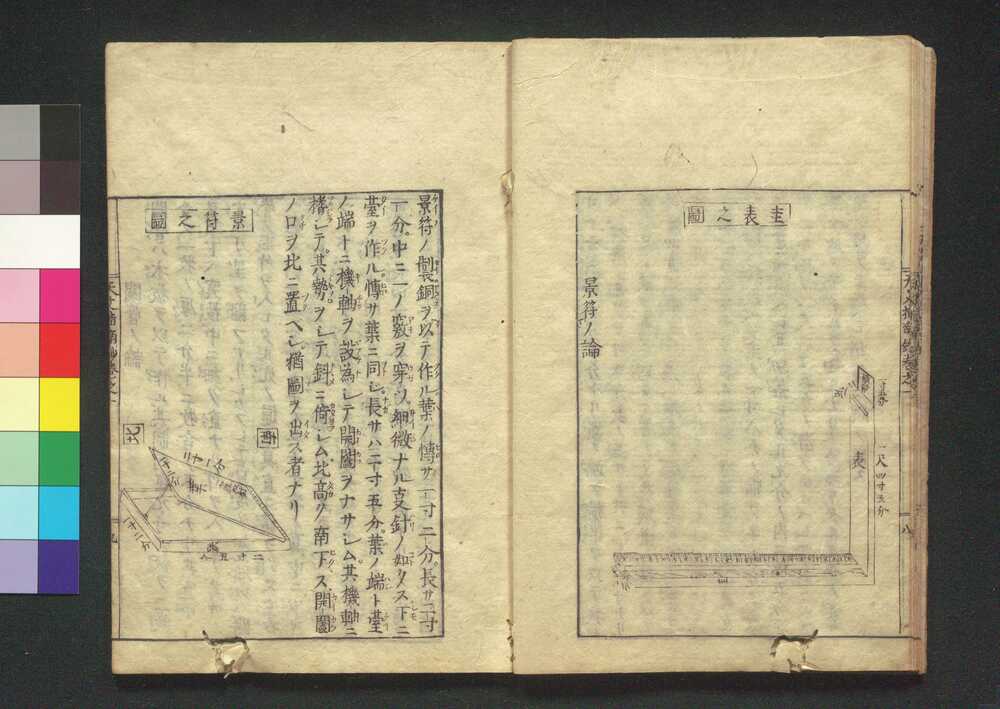 圭表之圖
表
一尺四寸五分
圭
八
景符ノ論
景符ノ製銅ヲ以テ作ル葉ノ慱サ一寸二分。長サ二寸
一分。中ニ一ノ竅ヲ穿ツ。細微ナル
針ノ如クス下ニ
臺ヲ作ル慱サ葉ニ同シ。長サハ二寸五分。葉ノ端ト臺
ノ端トニ機軸ヲ設為シテ開闔ヲナサシム其機軸ニ
シテ其勢ヲシテ斜ニ倚シム北高ク南下ス開闔
ノ口ヲ北ニ置ヘシ猶圖ヲ出ス者ナリ
景符之圖
南
北
二寸五分